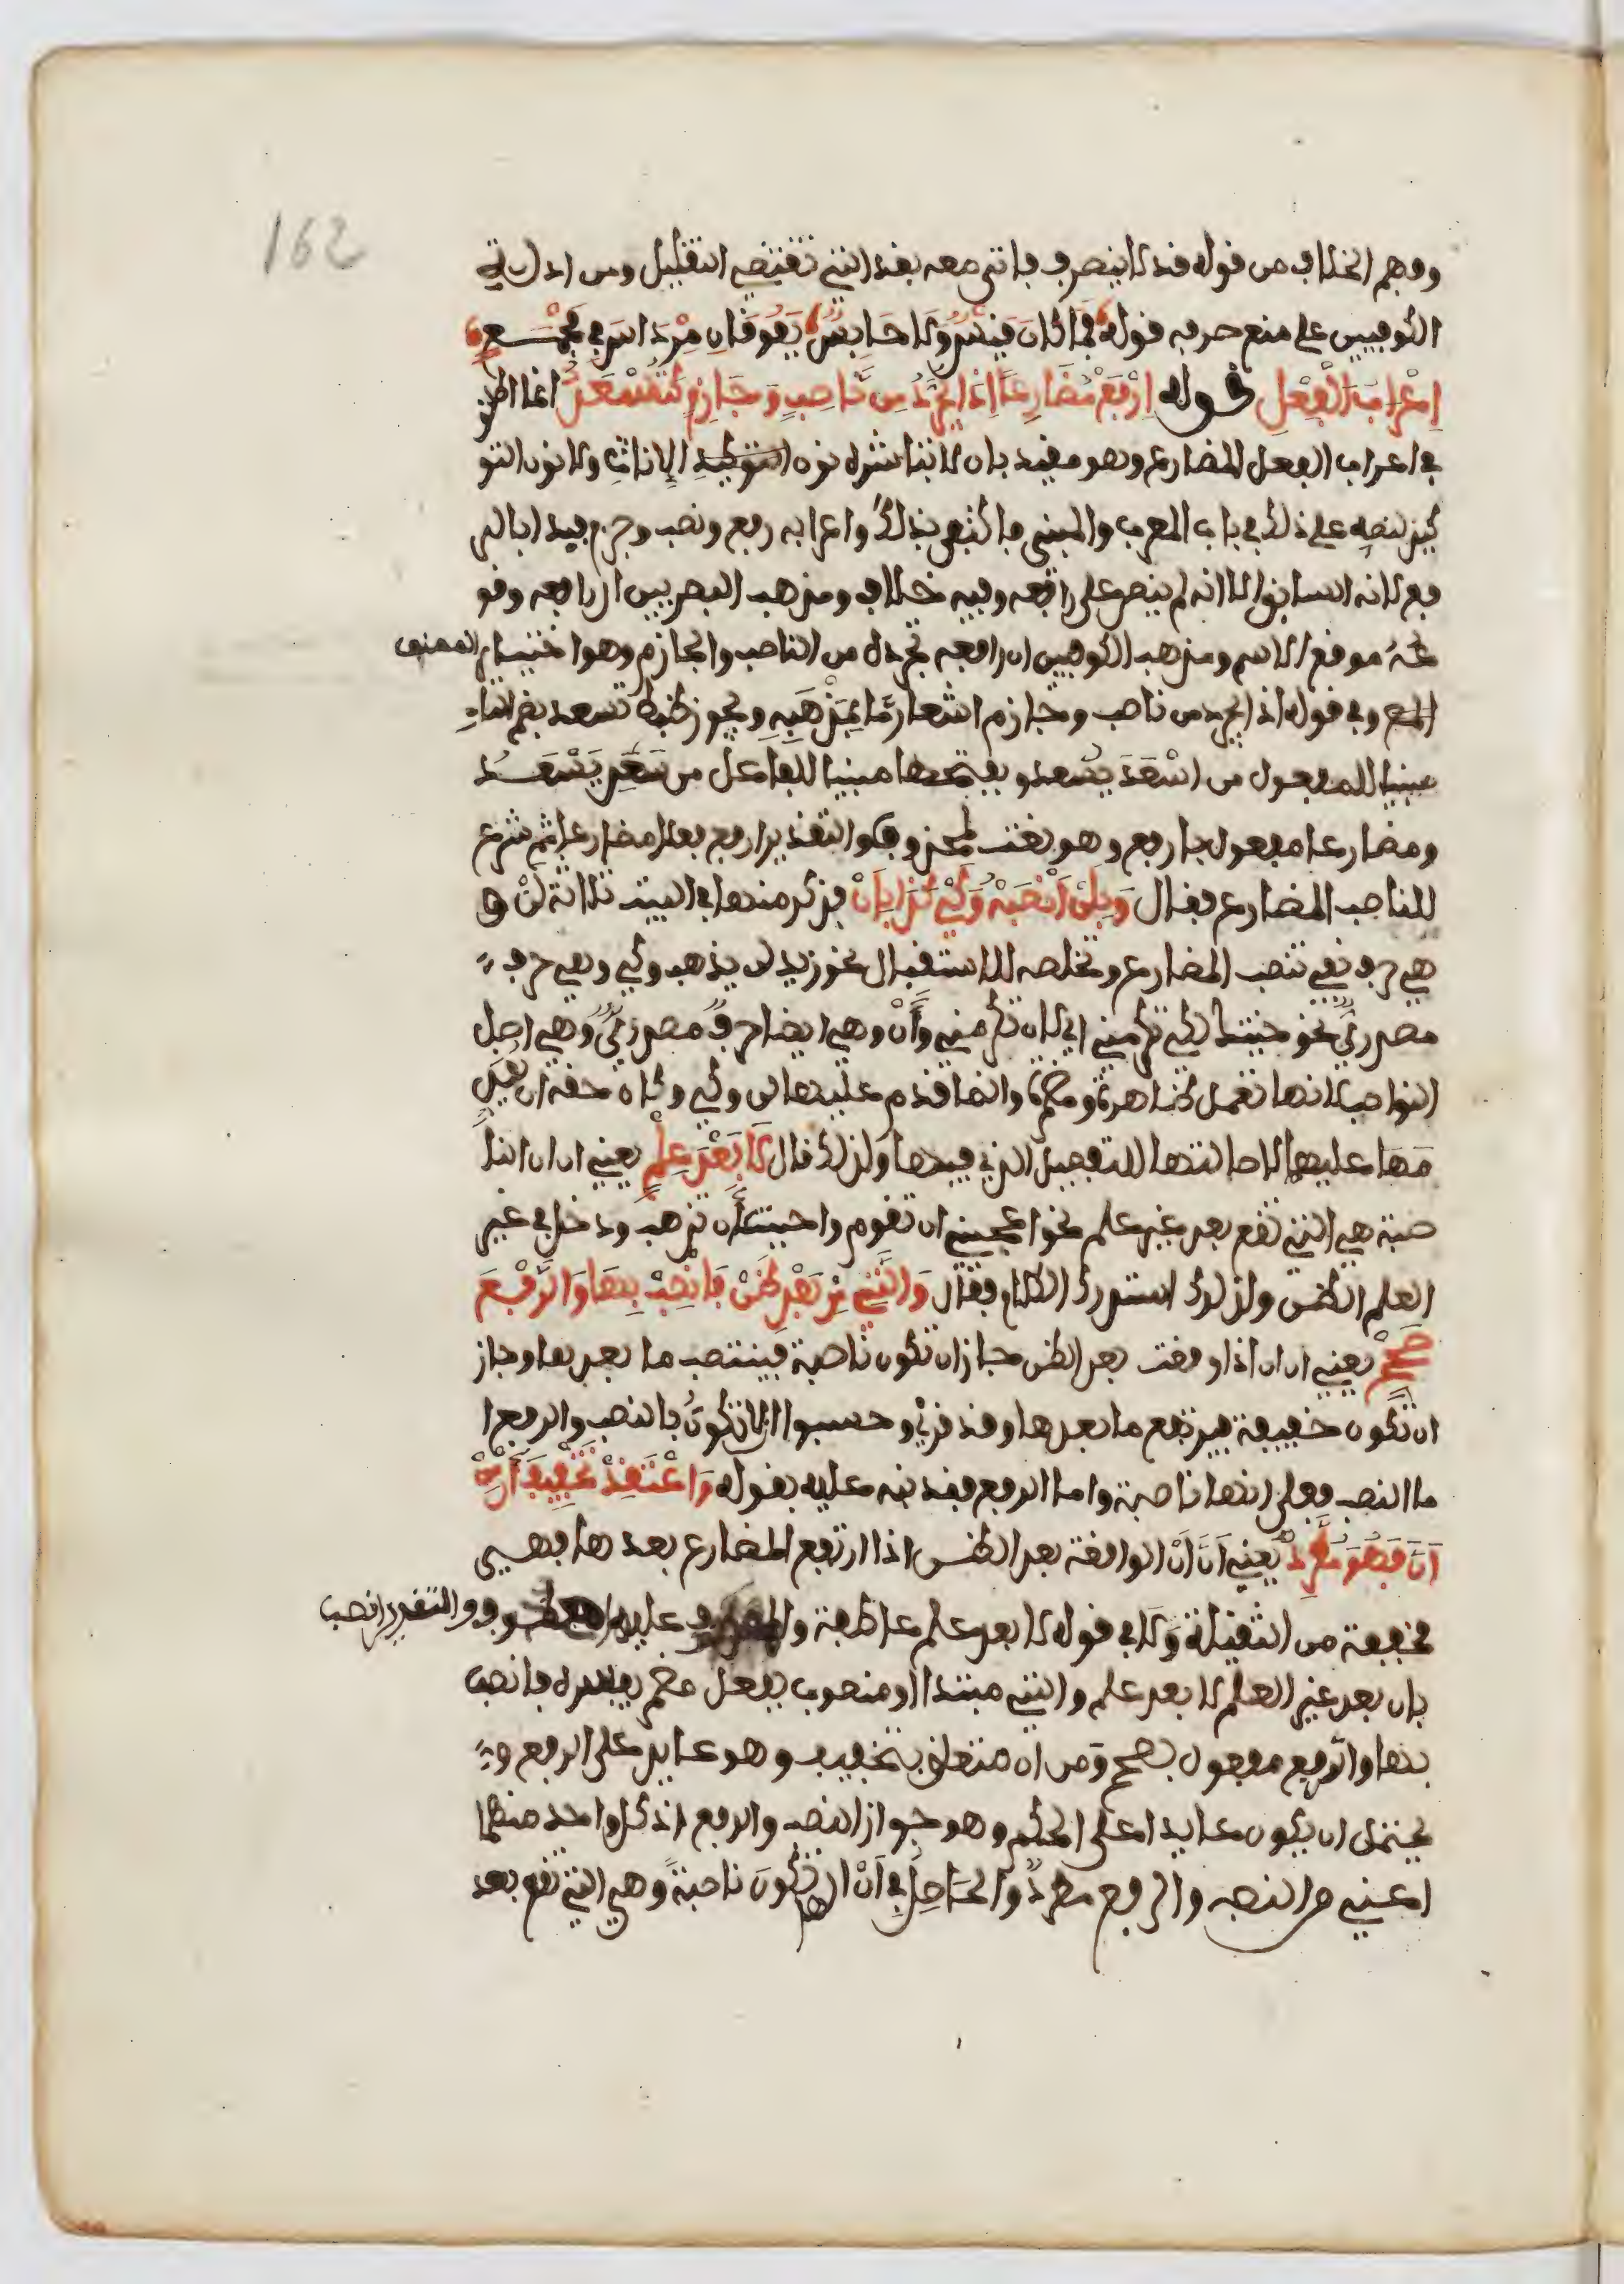 162
وفهم الخلاف من قوله قد لا ينصرف فاتى معه بقد التي تقتضي التقليل ومن ادلة
الكوفيين على منع صرفه قوله فَمَا كَانَ قَيْسٌ وَلَا حَابِسٌ يَفُوقَانِ مِرْدَاسَ فِي مَجْمَعِ
إِعْرَابُ الْفِعْلِ قوله اِرْفَعْ مُضَارِعًا إِذَا يُجَرَّدُ مِنْ نَّاصِبٍ وَجَازِمٍ كَتَسْعَدُ انما اطلق
في اعراب الفعل المضارع وهو مقيد بان لا تباشره نون التوكيد الإناث ولا نون التو
كيد لنصه على ذلك في باب المعرب والمبني فاكتفى بذلك واعرابه رفع ونصب وجزم فبدا بالر
فع لانه السابق الا انه لم ينص على رافعه وفيه خلاف ومذهب البصريين ان رافعه وقو
عُهُ موقع الاسم ومذهب الكوفيين ان رافعه تجرده من الناصب والجازم وهو اختيار المصنف
وفي قوله اذا يجرد من ناصب وجازم اشعار مَّا بِمَذْهَبِهِ ويجوز ضبط تسعد بضم التاءِ
مبنيا للمفعول من اسْعَدَ يسعد وبفتحها مبنيا للفاعل من سَعِدَ يَسْعَدُ
ومضارعا مفعول بارفع وهو نعت لمحذوف والتقدير ارفع فعلا مضارعا ثم شرع
للناصب المضارع فقال وَبِلَنِ انْصِبْهُ وَكَيْ كَذَا بِأَنْ فذكر منها في البيت ثلاثة لَنْ و
هي حرف نفي تنصب المضارع وتخلصه للاستقبال نحو زيد لن يذهب وكي وهي حرف
مصدريٌّ نحو جئتك لكي تكرمني اي لان تكرمني وَأَنْ وهي ايضا حرفٌ مصدريٌّ وهي اصل
النواصب لانها تعمل ظاهرة ومضمرة وانما قدم عليها لن وكي وكان حقه ان يُقَدِّ
مَهَا عليهما لاحالتها للتفصيل الذي فيها ولذلك قال لَا بَعْدَ عِلْمٍ يعني ان ان النا
صبة هي التي تقع بعد غير علم نحو اعجبني ان تقوم واحببت أن تذهب ودخل في غير
العلم الظن ولذلك استدرك الكلام فقال وَالَّتِي مِنْ بَعْدِ ظَنٍّ فَانْصِبْ بِهَا وَالرَّفْعَ
صَحِّحْ يعني ان ان اذا وقعت بعد الظن جاز ان تكون ناصبة فينتصب ما بعدها وجاز
ان تكون خفيفة فيرتفع ما بعدها وقد قرئ وحسبوا الا تكونُ بالنصب والرفع ا
ما النصب فعلى انها ناصبة واما الرفع فقد نبه عليه بقوله وَاعْتَقِدْ تَخْفِيفَهَا مِنْ
أَنَّ فَهْوَ مُطَّرِدْ يعني اَنَّ اَنْ الواقعة بعد الظن اذا ارتفع المضارع بعدها فهي
مخففة من الثقيلة وَلَا في قوله لا بعد علم عاطفة والمعطوف عليه محذوف والتقدير انصب
بان بعد غير العلم لا بعد علم والتي مبتدا او منصوب بفعل مضمر يفسره فانصب
بها والرفع مفعول بصحح وَمن ان متعلق بتخفيف وهو عايد على الرفع و
يحتمل ان يكون عايدا على الحكم وهو جواز النصب والرفع اذ كل واحد منهما
اعني من النصب والرفع مطردٌ والحَاصِلُ في اَنْ ان تكونَ ناصبةً وهي التي تقع بعد